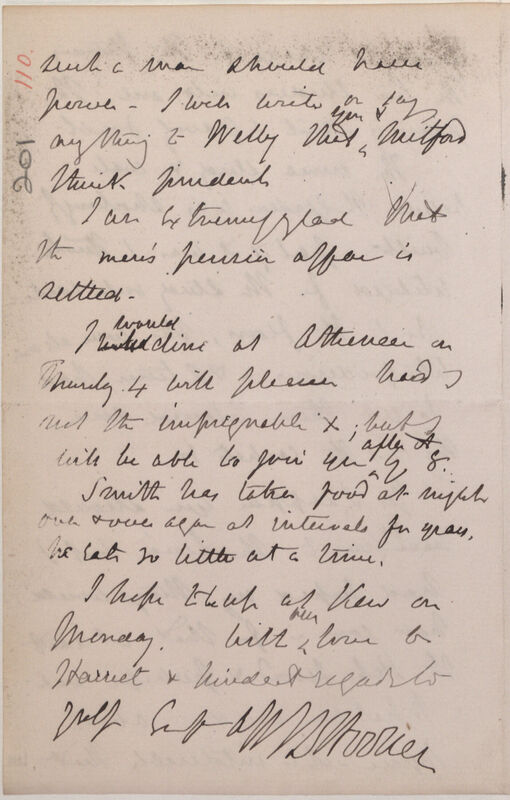 110.
201
such a man should have
power - I will write or say
anything to Welby that you & Mitford
think prudent
I am extremely glad that
the men's pension affair is
settled -
I would dine at Athenaeum on
Thursday 4 with pleasure had I
not the x, but I
will be able to join you after it by 8.
Smith has taken food at night
over & over again at intervals for years,
he eats so little at a time.
I hope to be up at Kew on
Monday. With our love to
Harriet & kindest regards to
yrself
Hooker